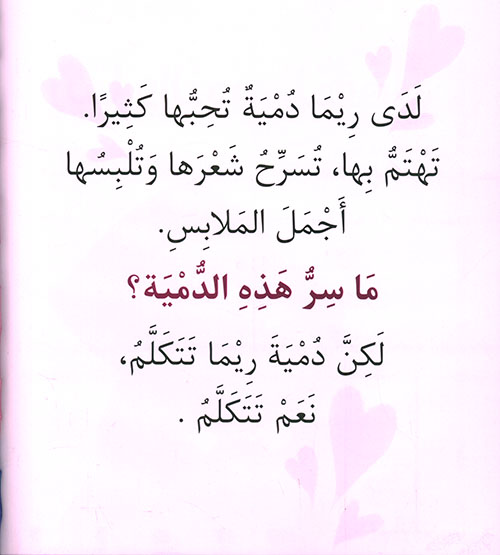 لَدَى رِيْمَا دُمْيَةٌ تُحِبُّها كَثِيرًا.
تَهْتَمُّ بِها، تُسَرِّحُ شَعْرَها وَتُلْبِسُها
أَجْمَلَ المَلابِسِ.
مَا سِرُّ هَذِهِ الدُّمْيَة؟
لَكِنَّ دُمْيَةَ رِيْمَا تَتَكَلَّمُ،
نَعَمْ تَتَكَلَّمُ .